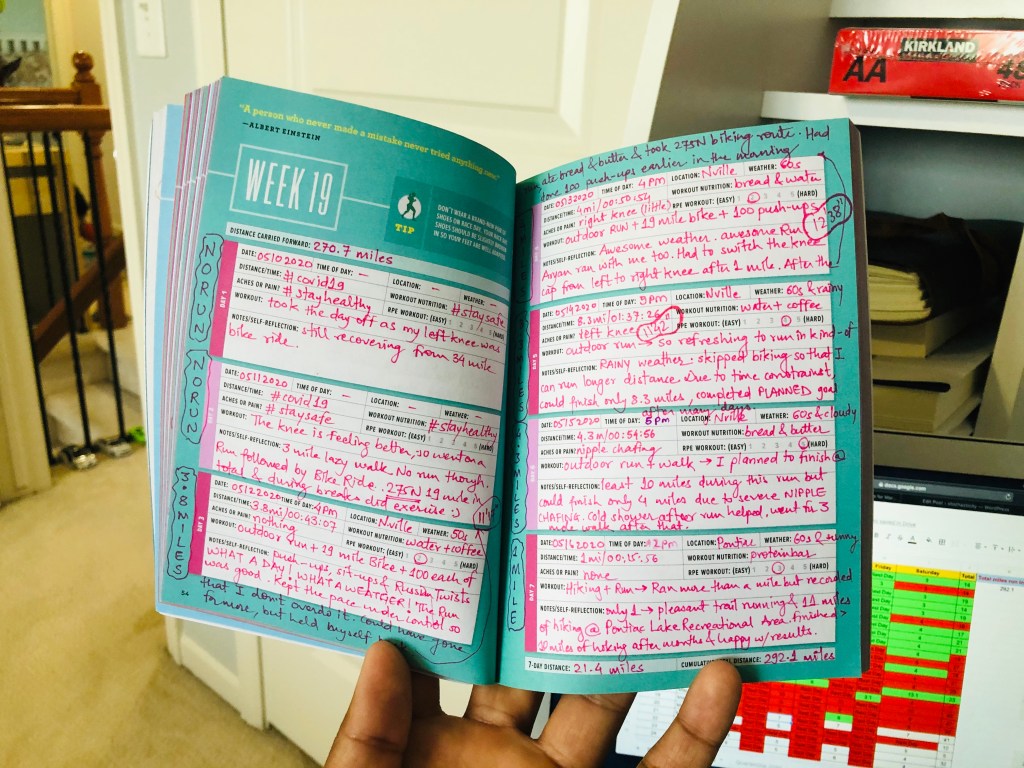 "A person who never made a mistake never tried anything new."
—ALBERT EINSTEIN
WEEK 19
TIP
DON'T WEAR A BRAND-NEW PAIR OF
SHOES ON RACE DAY. YOUR
SHOES SHOULD BE SLIGHTLY BROKEN
IN SO YOUR FEET ARE WELL ADAPTED
DISTANCE CARRIED FORWARD: 270.7 miles
NO RUN
DAY 1
DATE: 05/10/2020 TIME OF DAY: — LOCATION: — WEATHER: —
DISTANCE/TIME: #covid19 WORKOUT NUTRITION: #staysafe
ACHES OR PAIN? #stayhealthy RPE WORKOUT: (EASY) 1 2 3 4 5 (HARD)
WORKOUT: took the day off as my left knee was
NOTES/SELF-REFLECTION: still recovering from 34 mile
bike ride.
NO RUN
DATE: 05/11/2020 TIME OF DAY: — LOCATION: — WEATHER: —
DISTANCE/TIME: #covid19 WORKOUT NUTRITION: #stayhealthy
ACHES OR PAIN? #staysafe RPE WORKOUT: (EASY) 1 2 3 4 5 (HARD)
WORKOUT: The knee is feeling better, so went on a
NOTES/SELF-REFLECTION: 3 mile lazy walk. No run though.
Run followed by Bike Ride. 275N 19 mile in
total & during breaks did exercise :)
3.8 MILES
DAY 3
DATE: 05/12/2020 TIME OF DAY: 4PM LOCATION: Nville WEATHER: 50s
DISTANCE/TIME: 3.8mi/00:43:07 WORKOUT NUTRITION: water + coffee
ACHES OR PAIN? nothing RPE WORKOUT: (EASY) 1 2 3 4 5 (HARD)
WORKOUT: outdoor run + 19 mile Bike + 100 each of
NOTES/SELF-REFLECTION: push-ups, sit-ups & Russian Twists
WHAT A DAY! WHAT A WEATHER! The Run
was good. kept the pace under control so
that I don't overdo it. could have gone
for more, but held myself
54
ate bread & butter & took 275N biking route. Had
done 100 push-ups earlier in the morning
DATE: 05/13/2020 TIME OF DAY: 4pm LOCATION: Nville WEATHER: 60s
DISTANCE/TIME: 4mi/00:50:54 WORKOUT NUTRITION: bread & water
ACHES OR PAIN? right knee (little) RPE WORKOUT: (EASY) 1 2 3 4 5 (HARD)
WORKOUT: outdoor RUN + 19 mile bike + 100 push-ups
12'38"
NOTES/SELF-REFLECTION: Awesome weather. awesome Run
Aryan ran with me too. Had to switch the knee
cap from left to right knee after 1 mile. After the
DAY 5
DATE: 05/14/2020 TIME OF DAY: 5pm LOCATION: Nville WEATHER: 60s & rainy
DISTANCE/TIME: 8.3mi/01:37:26 WORKOUT NUTRITION: water + coffee
ACHES OR PAIN? left knee RPE WORKOUT: (EASY) 1 2 3 4 5 (HARD)
WORKOUT: outdoor run → so refreshing to run in kind-of
NOTES/SELF-REFLECTION: RAINY weather. skipped biking so that I
can run longer distance. Due to time constraint,
could finish only 8.3 miles, completed PLANNED goal
after many days.
DATE: 05/15/2020 TIME OF DAY: 5pm LOCATION: Nville WEATHER: 60s & cloudy
DISTANCE/TIME: 4.3mi/00:54:56 WORKOUT NUTRITION: bread & butter
ACHES OR PAIN? nipple chafing RPE WORKOUT: (EASY) 1 2 3 4 5 (HARD)
WORKOUT: outdoor run + walk → I planned to finish @
NOTES/SELF-REFLECTION: least 10 miles during this run but
could finish only 4 miles due to severe NIPPLE
CHAFING. Cold shower after run helped, went for 3
mile walk after that.
MILES
1 MILE
DAY 7
DATE: 05/16/2020 TIME OF DAY: 12pm LOCATION: Pontiac WEATHER: 60s & sunny
DISTANCE/TIME: 1mi/00:15:56 WORKOUT NUTRITION: protein bar
ACHES OR PAIN? none RPE WORKOUT: (EASY) 1 2 3 4 5 (HARD)
WORKOUT: Hiking + Run → Ran more than a mile but recorded
NOTES/SELF-REFLECTION: only 1 → pleasant trail running & 11 miles
of hiking @ Pontiac Lake Recreational Area. finished >
10 miles of hiking after months & happy w/ results.
7-DAY DISTANCE: 21.4 miles CUMULATIVE DISTANCE: 292.1 miles
KIRKLAND
AA
48
docs.google.com
Friday Saturday Total
292.1